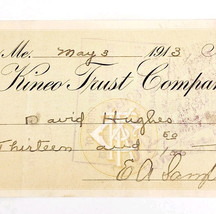 Me. May 3 1913
Kineo Trust Compan
David Hughes
Thirteen and 50
E A Samp